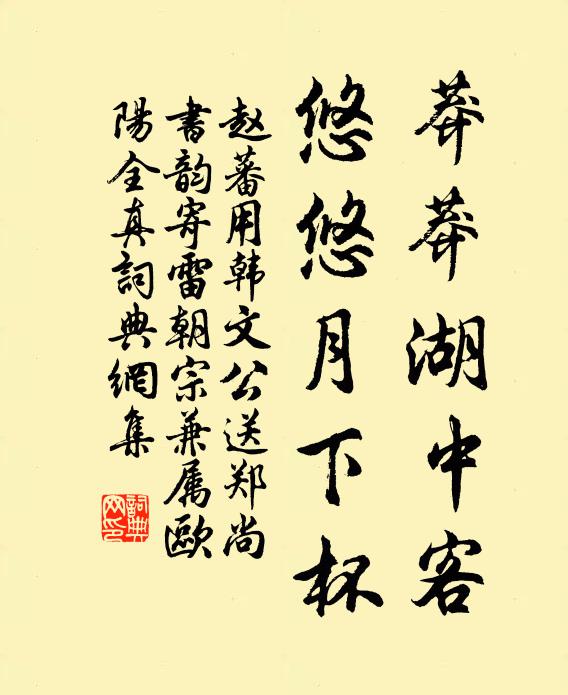 莽莽湖中客
悠悠月下杯
赵蕃用韩文公送郑尚
书韵寄雷朝宗兼属欧
阳全真詞典網集
詞典網印